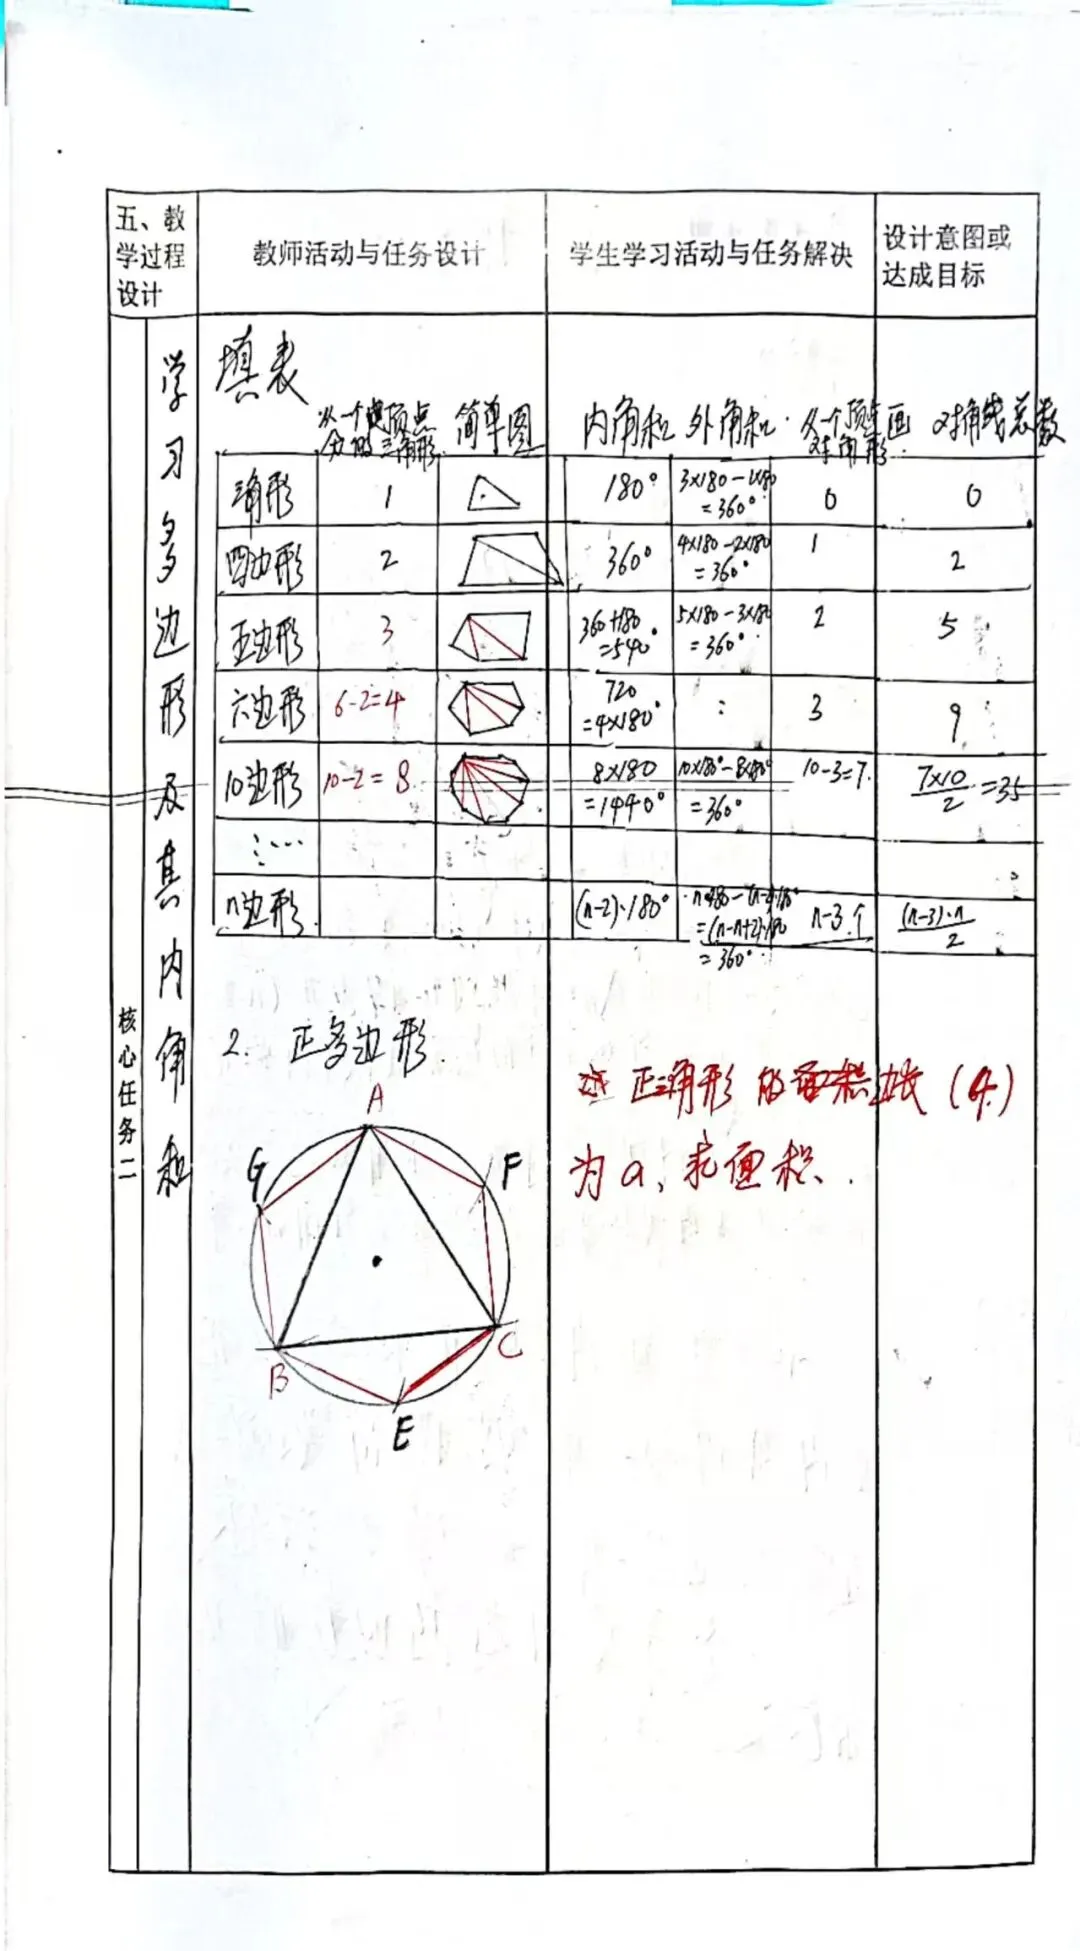 五、教学过程设计
教师活动与任务设计
学生学习活动与任务解决
设计意图或达成目标
学习多边形及其内角和
核心任务二
填表
从一个顶点分的三角形 简单图 内角和 外角和 从一个顶点画对角形 对角线总数
三角形 1 180° 3×180-1×180=360° 0 0
四边形 2 360° 4×180-2×180=360° 1 2
五边形 3 360+180=540° 5×180-3×180=360° 2 5
六边形 6-2=4 720=4×180° : 3 9
10边形 10-2=8 8×180=1440° 10×180°-8×180°=360° 10-3=7 7×10/2=35
n边形 (n-2)·180° n·180-(n-2)·180°=(n-n+2)·180=360° n-3个 (n-3)·n/2
2. 正多边形
A
G
F
B
C
E
正三角形的面积边长(4)
为a,求面积.